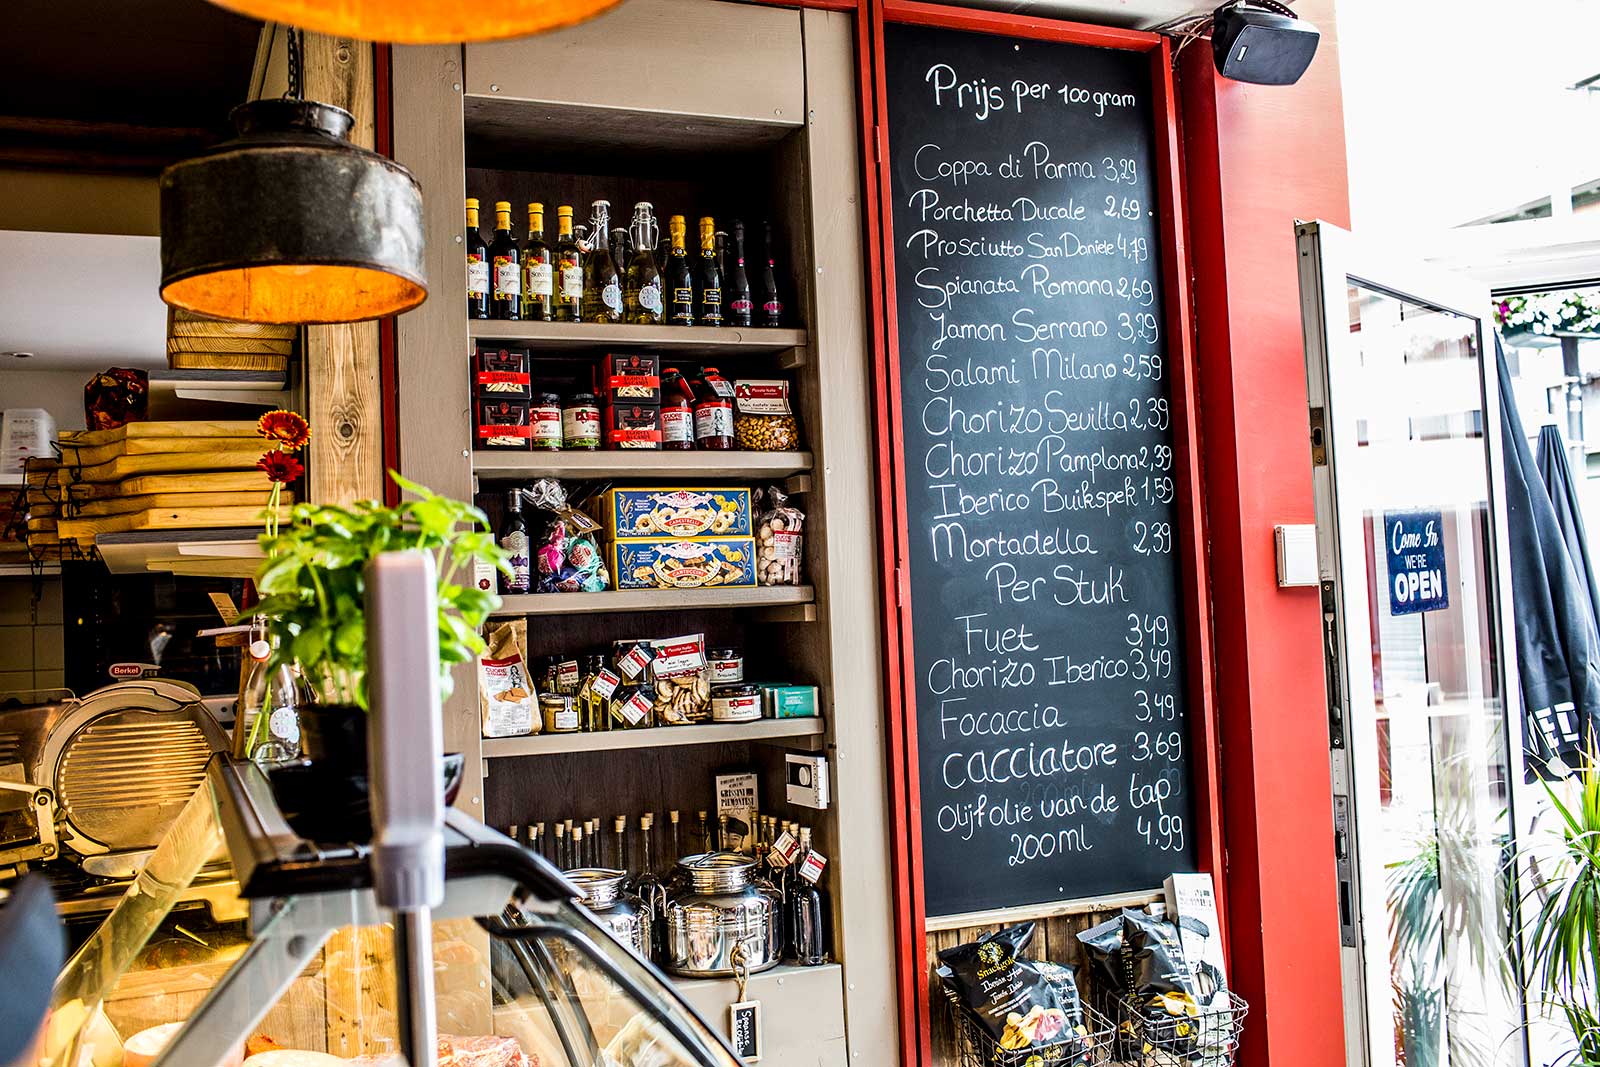 Prijs per 100 gram
Coppa di Parma 3,29
Porchetta Ducale 2,69.
Prosciutto San Daniele 4,79
Spianata Romana 2,69
Jamon Serrano 3,29
Salami Milano 2,59
Chorizo Sevilla 2,39
Chorizo Pamplona 2,39
Iberico Buikspek 1,59
Mortadella 2,39
Per Stuk
Fuet 3,49
Chorizo Iberico 3,49
Focaccia 3,49.
Cacciatore 3,69
Olijfolie van de tap
200ml 4,99
Come In
WE'RE
OPEN
Berkel
CUORE
GRISSINI
PIEMONTESI
Snackgold
Iberian Ham